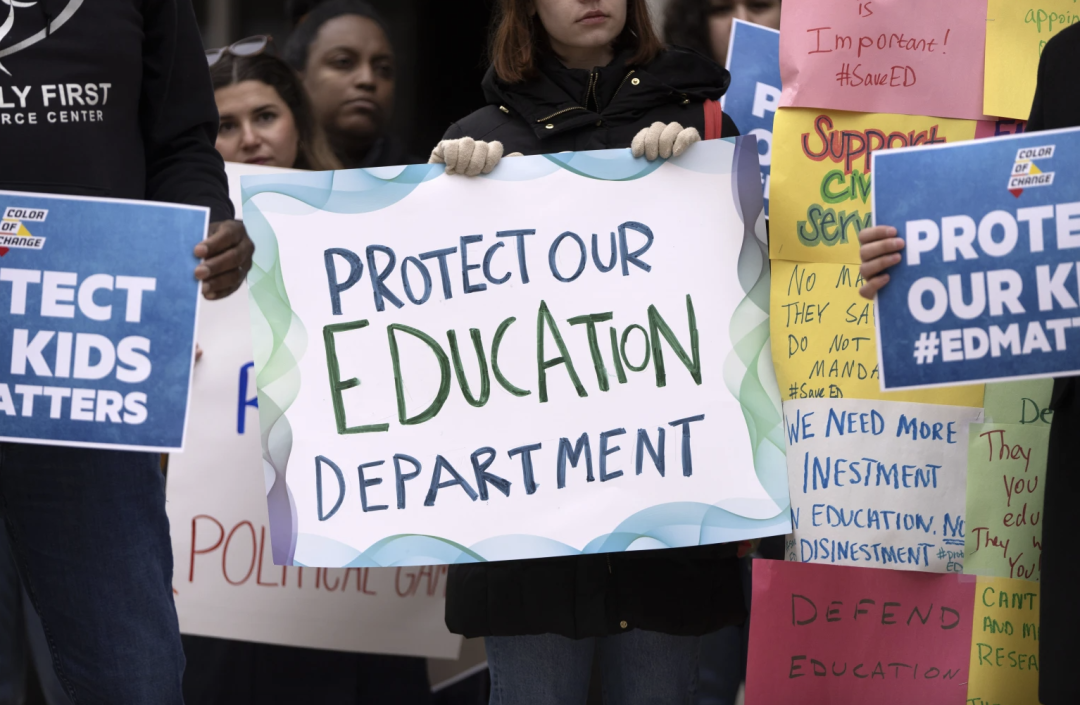 LY FIRST
RCE CENTER
COLOR
OF
CHANGE
TECT
KIDS
ATTERS
PROTECT OUR
EDUCATION
DEPARTMENT
POLITICAL GAM
IS
Important!
#SaveED
appoin
Support
Civ
Serv
NO MA
THEY SA
DO NOT
MANDA
#Save ED
WE NEED MORE
INESTMENT
N EDUCATION. NO
DISINESTMENT
DEFEND
EDUCATION
COLOR
OF
CHANGE
PROTE
OUR KI
#EDMATT
De
They
You
edu
They w
You.
CANT
AND M
RESEA